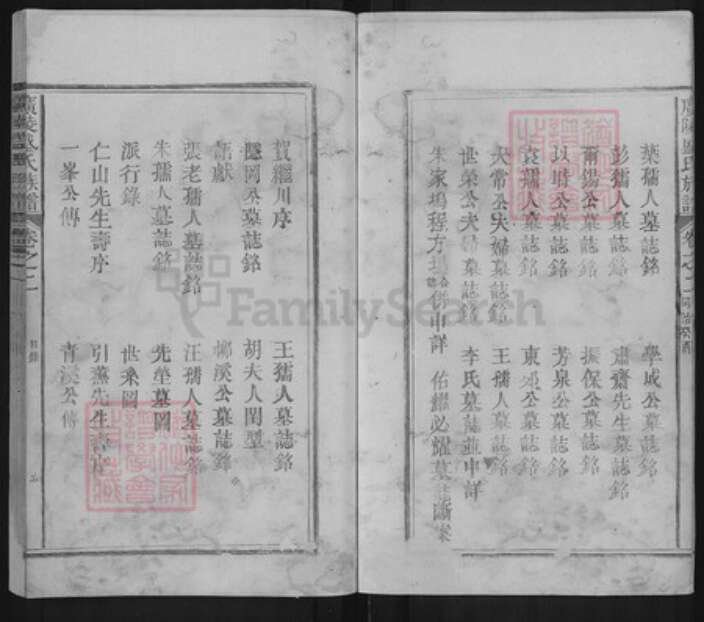 葉孺人墓誌銘 學城公墓誌銘
彭孺人墓誌銘 肅齋先生墓誌銘
爾錫公墓誌銘 振保公墓誌銘
以時公墓誌銘 芳泉公墓誌銘
袁孺人墓誌銘 東邓公墓誌銘
大常公夫婦墓誌銘 王孺人墓誌銘
世榮公夫婦墓誌銘 李氏墓誌並申詳
朱家塢程方 佑耀必耀墓誌斷案
廣陵戴氏族譜 卷之二 目錄
賀繼川序 王孺人墓誌銘
隱岡公墓誌銘 胡夫人閫型
語獻 鄉溪公墓誌銘
張老孺人墓誌銘 汪孺人墓誌銘
朱孺人墓誌銘 先塋墓圖
派行錄 世系圖
仁山先生壽序 引燕先生壽序
一峯公傳 青溪公傳
FamilySearch